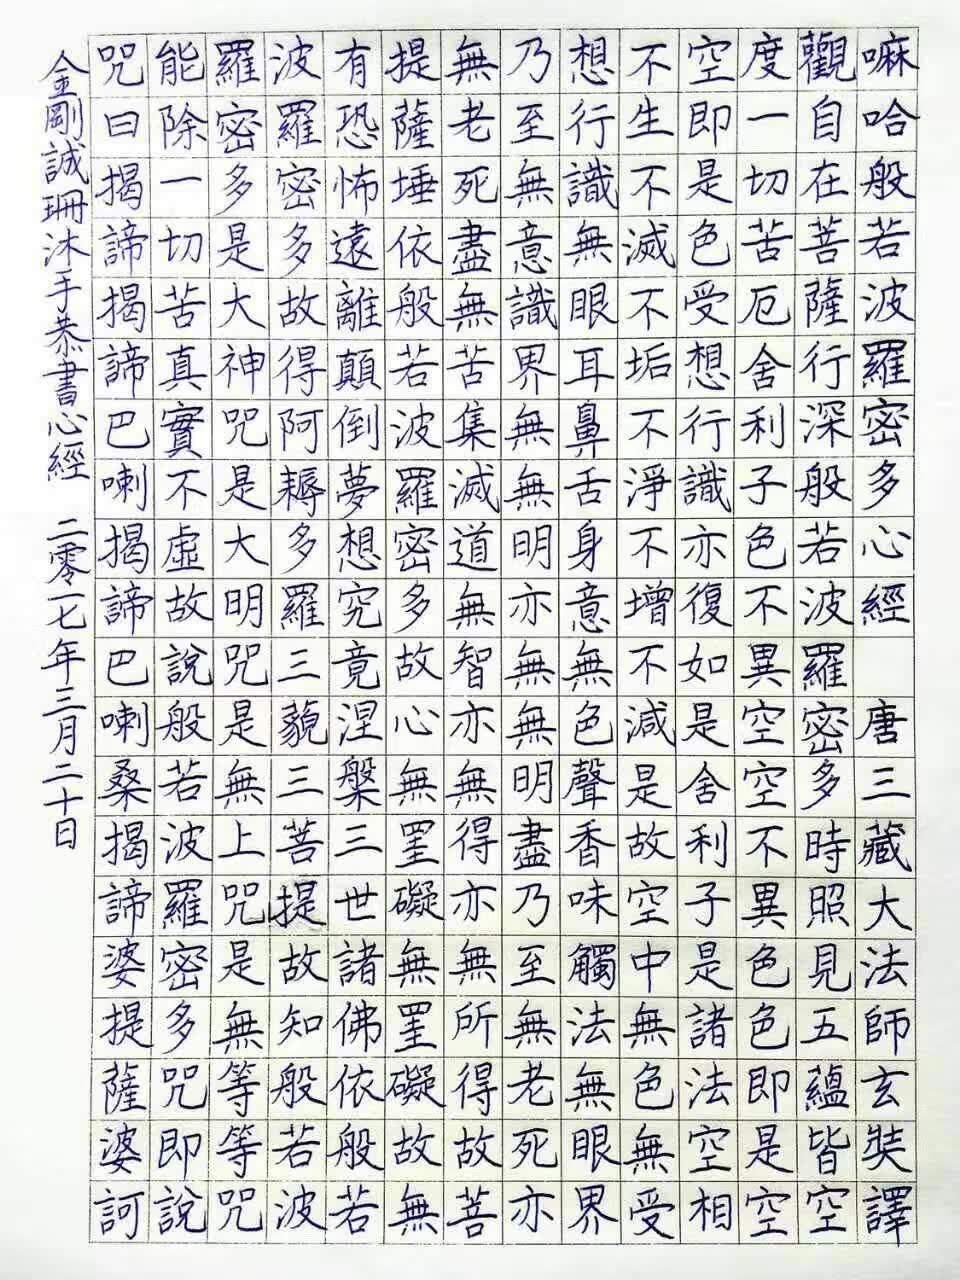 嘛哈般若波羅密多心經 唐三藏大法師玄奘譯
觀自在菩薩行深般若波羅密多時照見五蘊皆空
度一切苦厄舍利子色不異空空不異色色即是空
空即是色受想行識亦復如是舍利子是諸法空相
不生不滅不垢不淨不增不減是故空中無色無受
想行識無眼耳鼻舌身意無色聲香味觸法無眼界
乃至無意識界無無明亦無無明盡乃至無老死亦
無老死盡無苦集滅道無智亦無得亦無所得故菩
提薩埵依般若波羅密多故心無罣礙無罣礙故無
有恐怖遠離顛倒夢想究竟涅槃三世諸佛依般若
波羅密多故得阿耨多羅三藐三菩提故知般若波
羅密多是大神咒是大明咒是無上咒是無等等咒
能除一切苦真實不虛故說般若波羅密多咒即說
咒曰揭諦揭諦巴喇揭諦巴喇桑揭諦婆提薩婆訶
金剛誠珊沐手恭書心經 二零一七年三月二十日